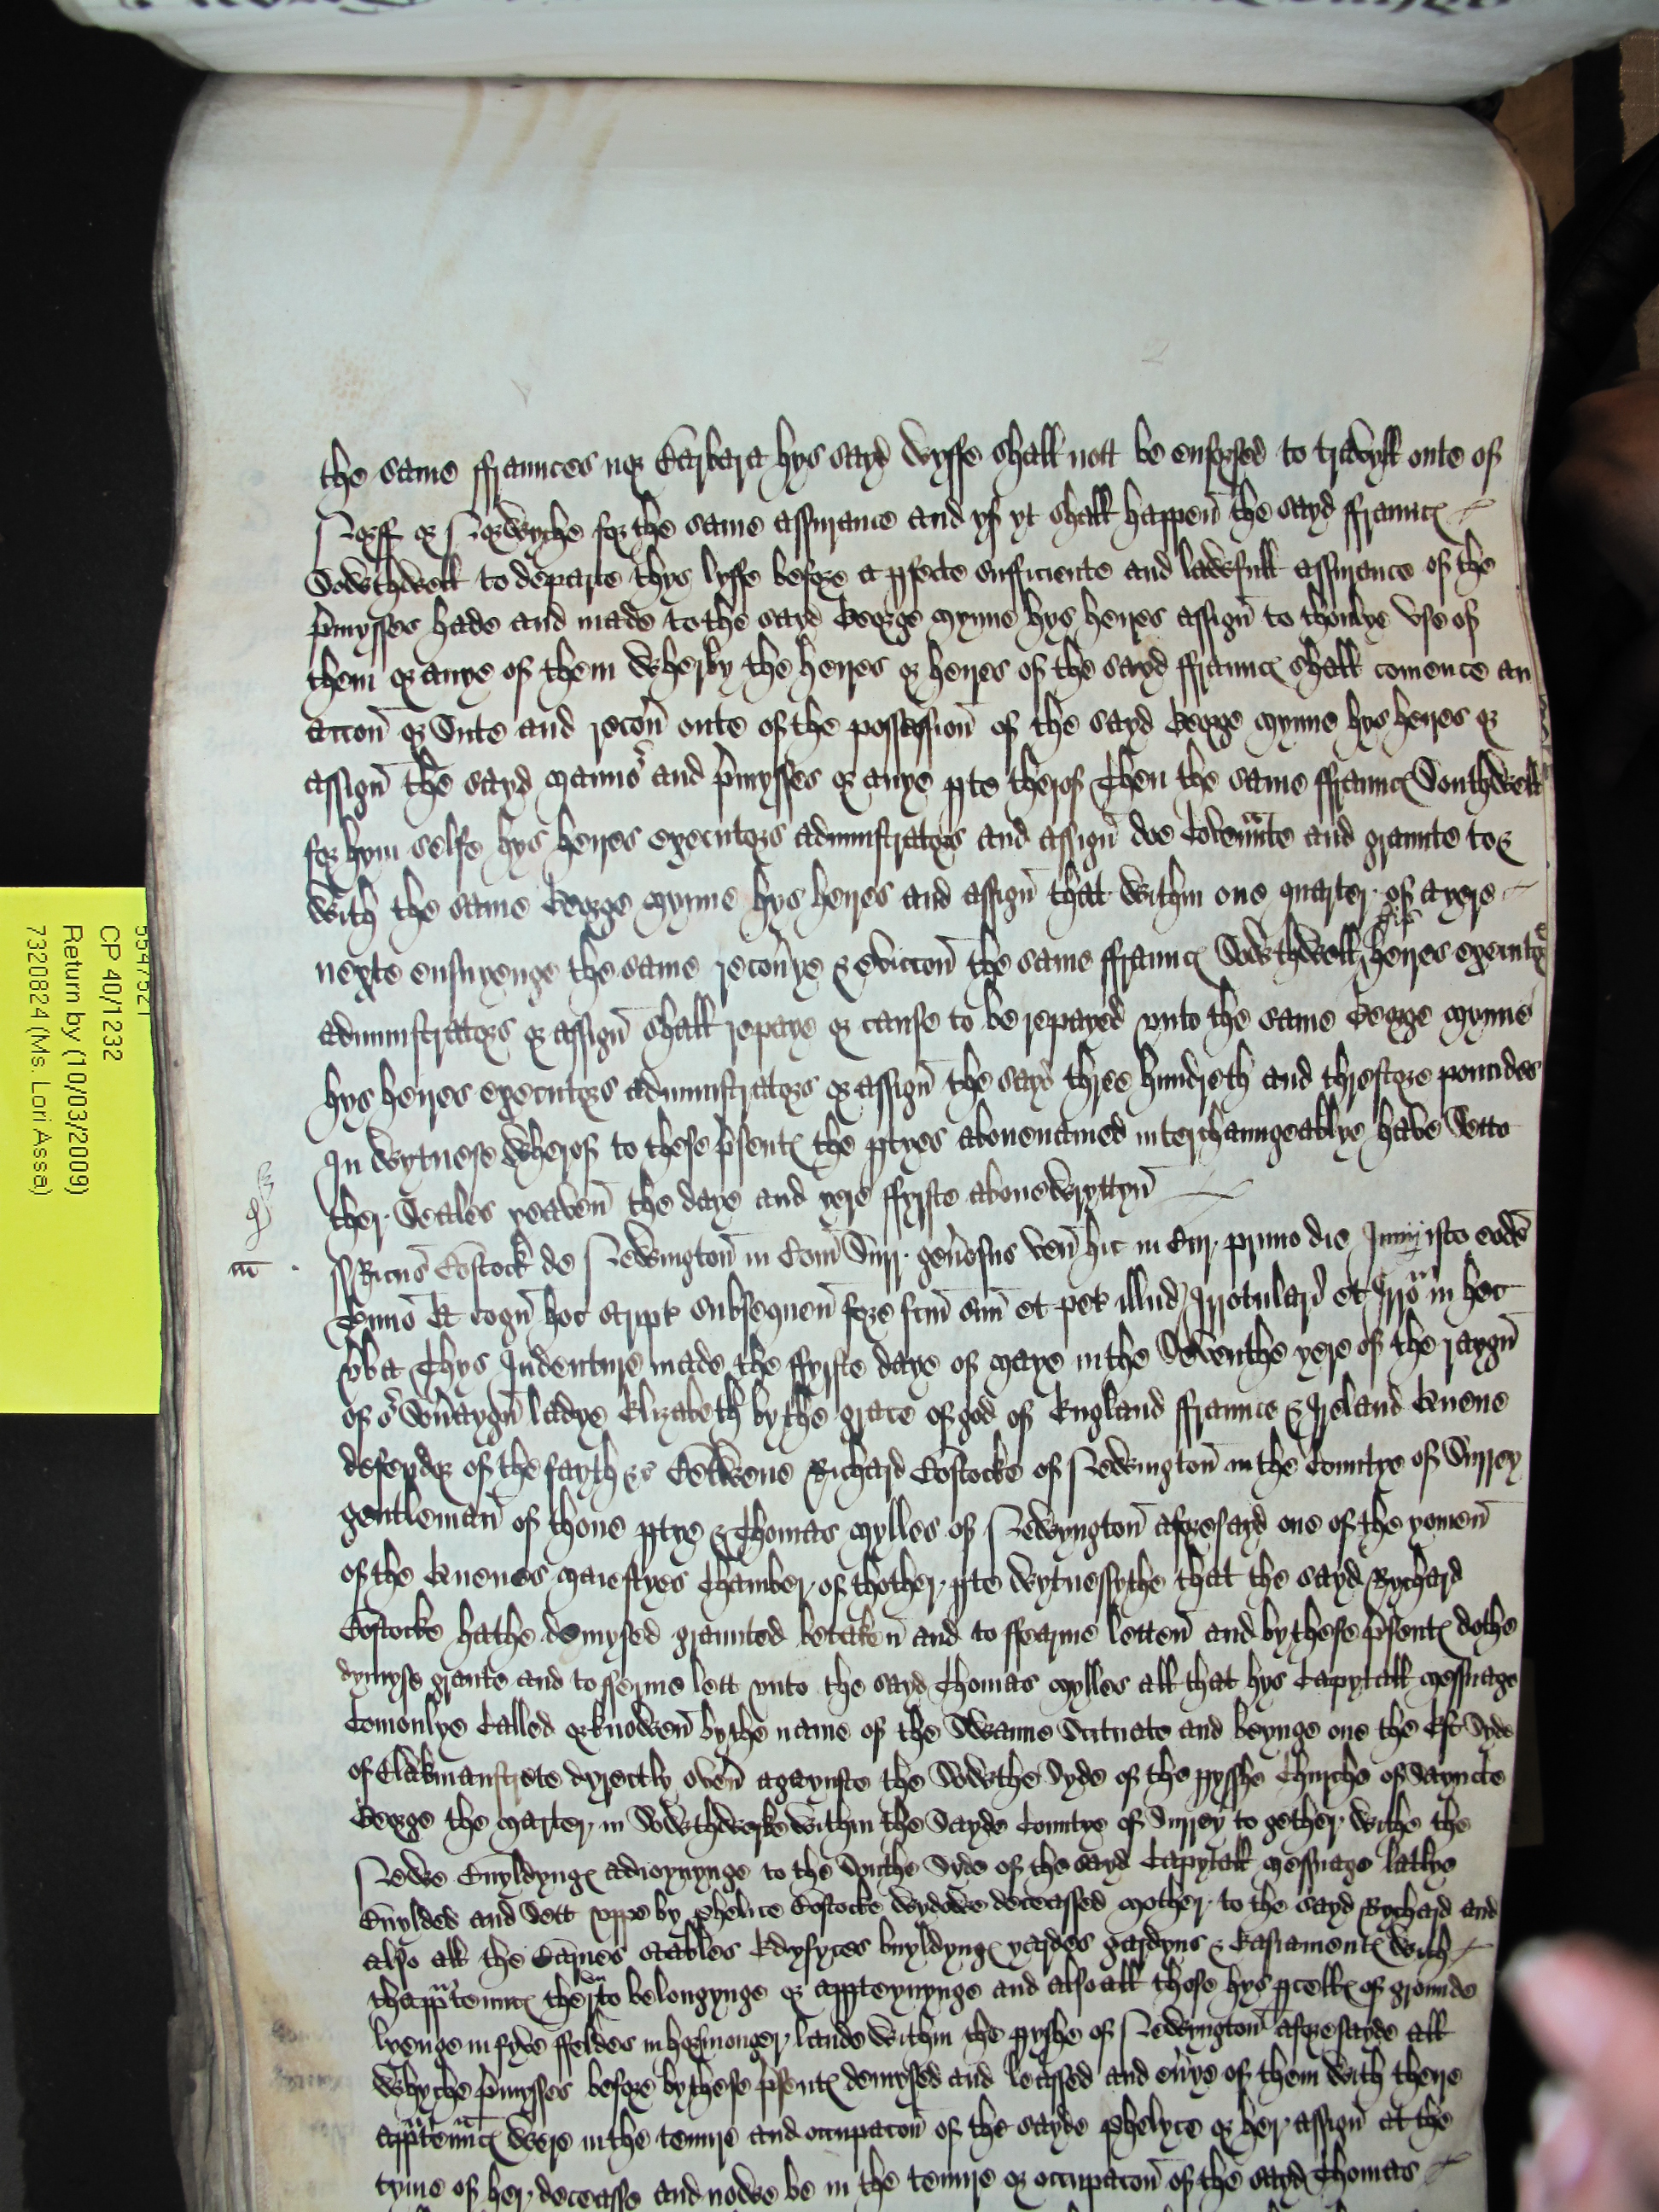 the same ffraunces nor Barbara hys sayd wyffe shall nott be enforsed to travyll oute of
Norff or Norwyche for the same assurance and yf yt shall happen the sayd ffraunc
Sowthwell to departe thys lyffe before a pfecte sufficiente and lawfull assurance of the
pmysses hade and made to the sayd George mynne hys heyres assign to thonlye use of
them or anye of them wherby the heyres or heyres of the sayd ffraunc shall comence an
accon or Sute and recou oute of the possession of the sayd George mynne hys heyres or
assign the sayd mannor and pmysses or anye pte therof Then the same ffraunc Southwell
for hym selfe hys heyres executors admynstrators and assign doe Covennte and graunte to &
with the same George mynne hys heyres and assign that within one quarter of a yere
nexte ensuyenge the same recouye & eviccon the same ffraunc Sowthwell his heyres executor
admynstrators or assign shall repaye or cause to be repayed unto the same George mynne
hys heyres executors admynstrators or assign the sayd three hundreth and threscore poundes
In wytnese wherof to these psent the ptyes abovenamed interchaungeablye have Setto
ther Seales yeaven the daye and yere ffyrste abovewryttyn
m Ricus Bostock de Newington in Com Surr genosus ven hic in Cur primo die Junij isto eodem
Termino Et cogn hoc script subsequen fore fcm suu et pet illud Irrotulari et Irro in hec
vba Thys Indenture made the ffyrste daye of maye in the Seventhe yere of the raygn
of or Soveraygn ladye Elizabeth by the grace of god of England ffraunce & Ireland Quene
defendor of the fayth &c Betwene Richard Bostocke of Newington in the Countye of Surrey
gentleman of thone ptye & Thomas mylles of Newyngton aforesayd one of the yomen
of the Quenes maiestyes Chamber of thother pte wytnessythe that the sayd Rychard
Bostocke hathe demysed graunted betaken and to ffearme letten and by these psent dothe
dymyse grante and to fferme lett unto the sayd Thomas mylles all that hys Capytall messuage
Comonlye Called or knowen by the name of the Swanne Scituate and beynge one the Est Syde
of Blakmanstrete dyrectly over agaynste the Sowthe Syde of the pyshe Churche of Saynte
George the marter in Sowthwerke within the Sayde Countye of Surrey to gether withe the
Newe Buyldyng adioynynge to the Southe Syde of the sayd Capytall messuage latlye
Buylded and Sett uppe by phelice Bostocke wydowe deceassed mother to the sayd Rychard and
also all the Barnes stables Edyfyces buyldyng yardes gardyns & Easiament with
thapptennc therunto belongynge or appteynynge and also all those hys pcell of grounde
lyenge in fyve ffeldes in horsmonger lande within the pyshe of Newyngton aforesayde all
whyche pmysses before by these psent demysed and leassed and evye of them with there
apptennc were in the tenure and occupacon of the sayde phelyce or her assign at the
tyme of her deceasse and nowe be in the tenure or occupacon of the sayd Thomas
5547521
CP 40/1232
Return by (10/03/2009)
7320824 (Ms. Lori Asse)